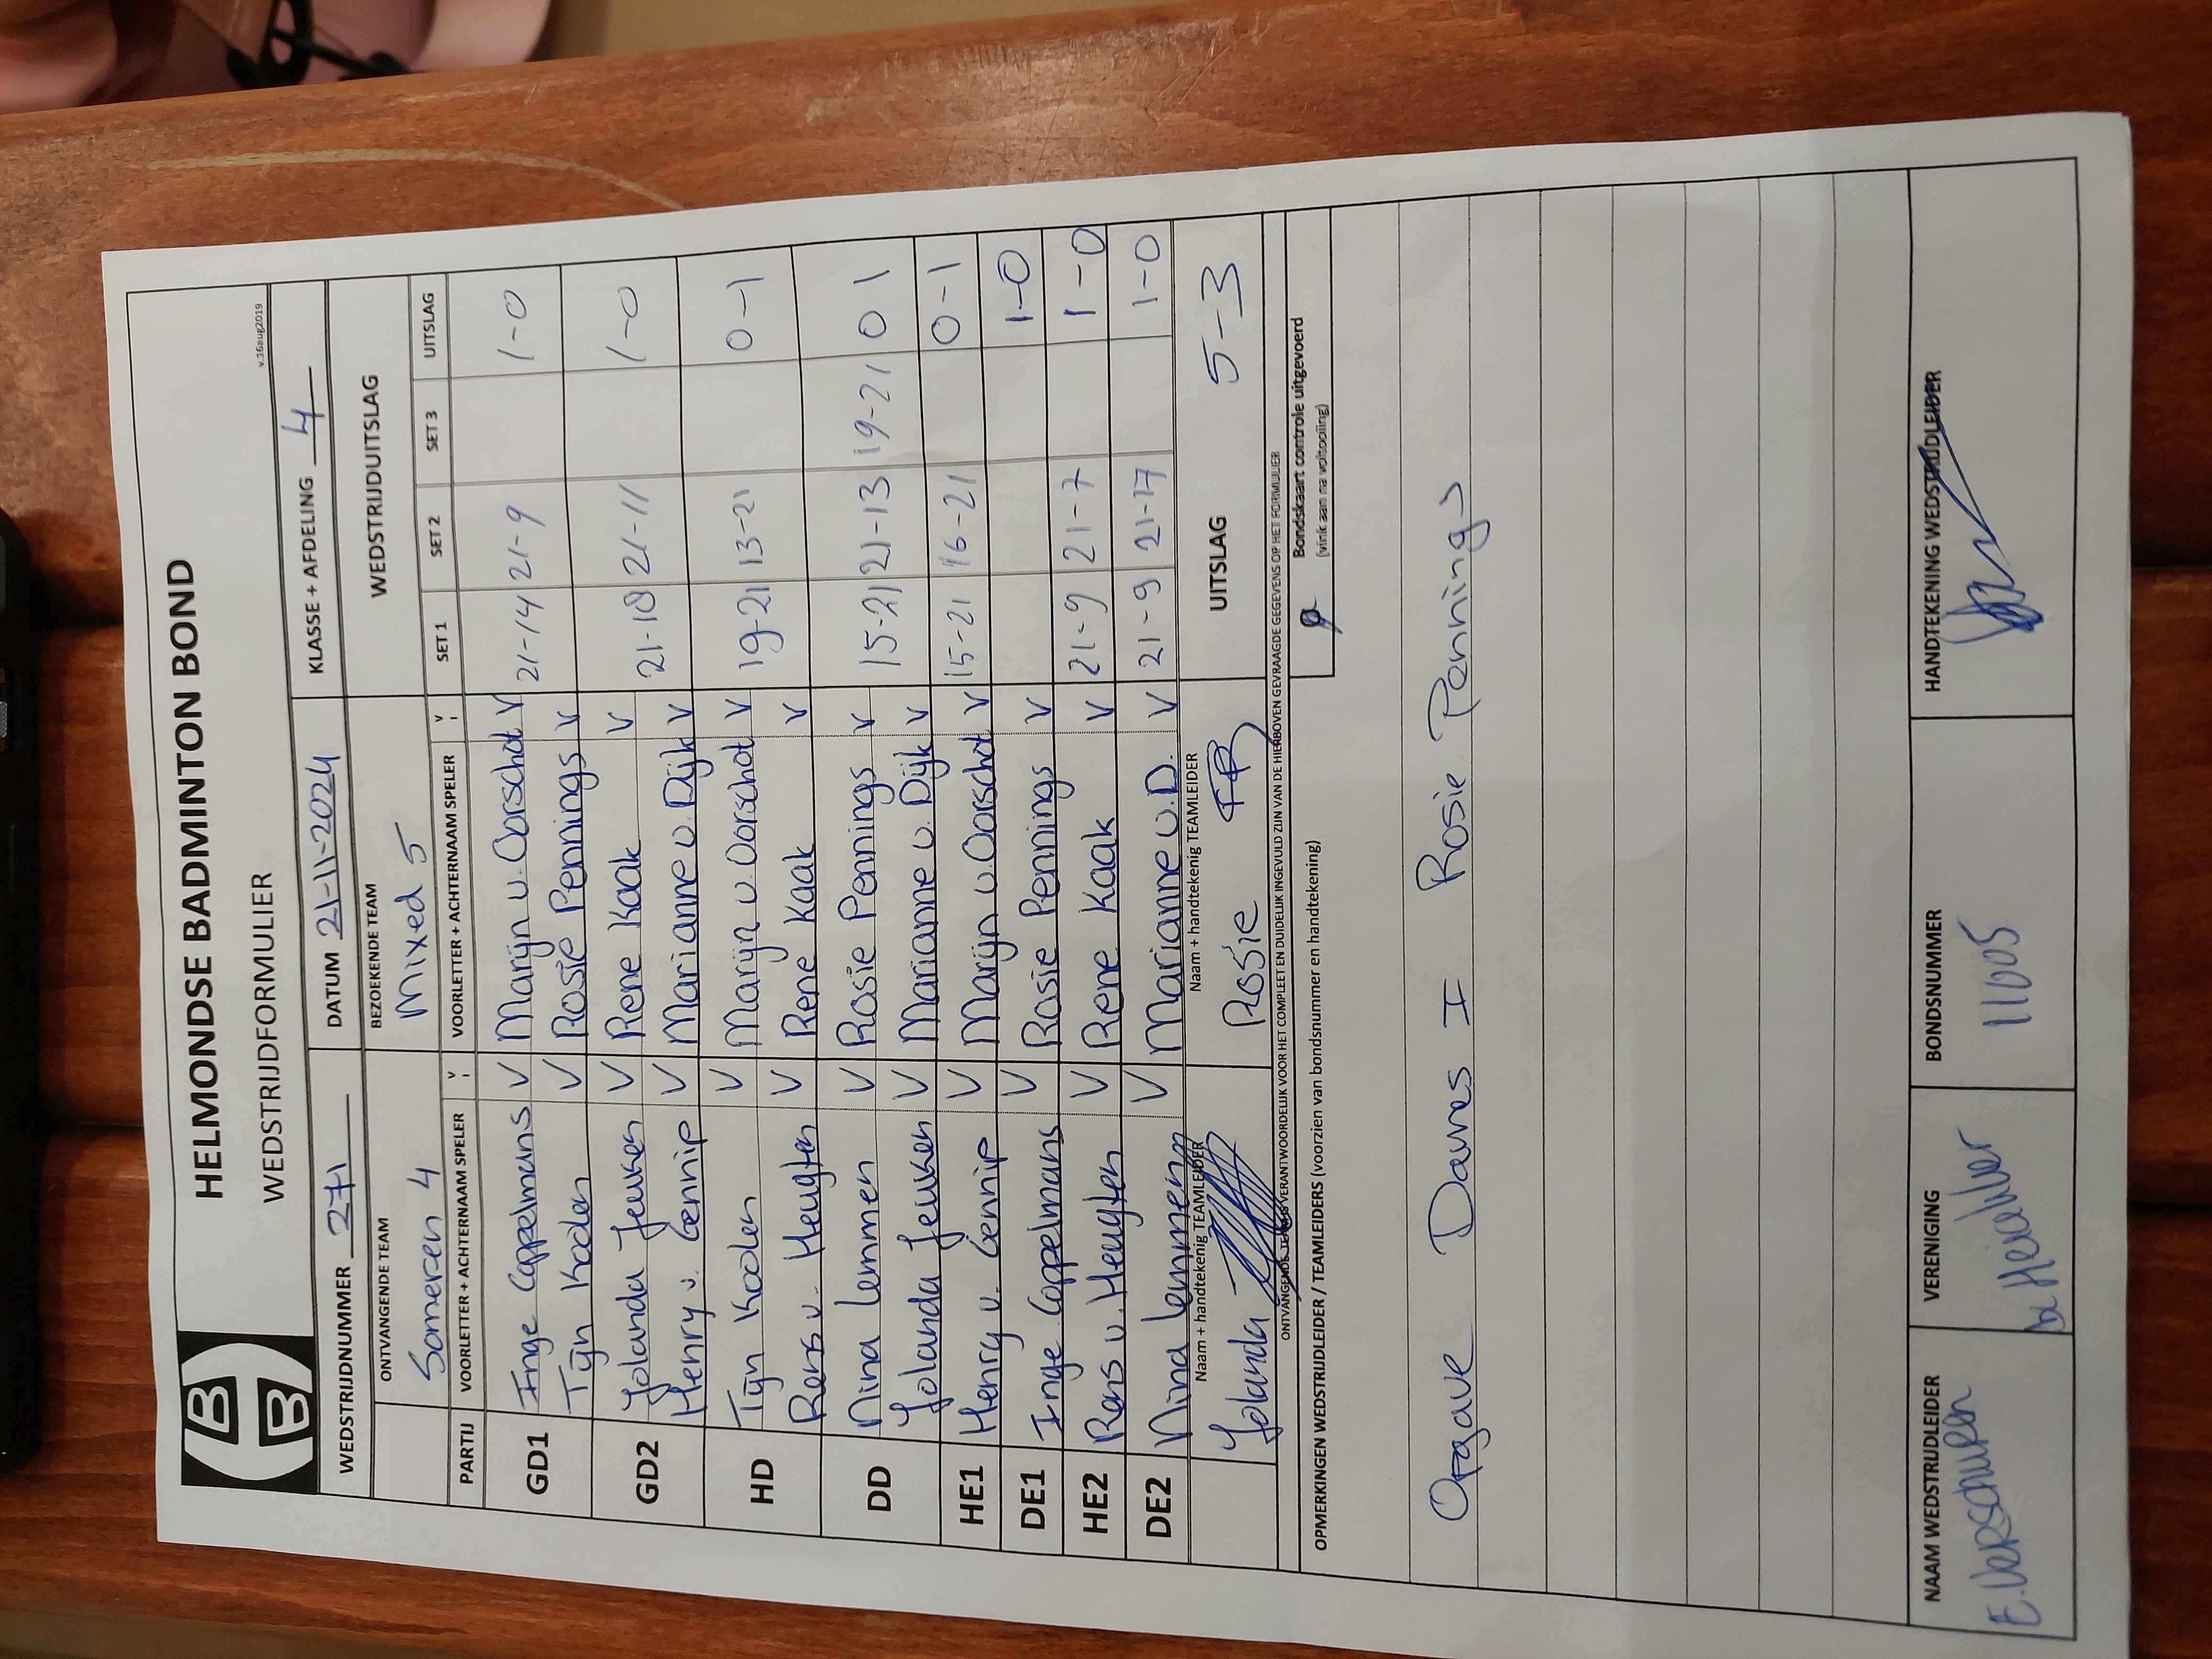 HELMONDSE BADMINTON BOND
WEDSTRIJDFORMULIER
v.16aug2019
WEDSTRIJDNUMMER 271 DATUM 21-11-2024 KLASSE + AFDELING 4
ONTVANGENDE TEAM BEZOEKENDE TEAM WEDSTRIJDUITSLAG
Someren 4 Mixed 5
PARTIJ VOORLETTER + ACHTERNAAM SPELER V VOORLETTER + ACHTERNAAM SPELER V SET 1 SET 2 SET 3 UITSLAG
GD1 Inge Coppelmans V Marijn v. Oorschot V 21-14 21-9 1-0
Tijn Koolen V Rosie Pennings V
GD2 Jolanda Jeuken V Rene Kaak V 21-18 21-11 1-0
Henry v. Gennip V Marianne v. Dijk V
HD Tijn Koolen V Marijn v. Oorschot V 19-21 13-21 0-1
Rens v. Heugten V Rene Kaak V
DD Nina Lemmen V Rosie Pennings V 15-21 21-13 19-21 0 1
Jolanda Jeuken V Marianne v. Dijk V
HE1 Henry v. Gennip V Marijn v. Oorschot V 15-21 16-21 0-1
DE1 Inge Coppelmans V Rosie Pennings V 1-0
HE2 Rens v. Heugten V Rene Kaak V 21-9 21-7 1-0
DE2 Nina Lemmen V Marianne v. D. V 21-9 21-17 1-0
Naam + handtekenig TEAMLEIDER Naam + handtekenig TEAMLEIDER
Jolanda Rosie UITSLAG 5-3
ONTVANGENDE TEAM IS VERANTWOORDELIJK VOOR HET COMPLEET EN DUIDELIJK INGEVULD ZIJN VAN DE HIERBOVEN GEVRAAGDE GEGEVENS OP HET FORMULIER
Bondskaart controle uitgevoerd
(vink aan na voltooiing)
OPMERKINGEN WEDSTRIJDLEIDER / TEAMLEIDERS (voorzien van bondsnummer en handtekening)
Opgave Dames I Rosie Pennings
NAAM WEDSTRIJDLEIDER VERENIGING BONDSNUMMER HANDTEKENING WEDSTRIJDLEIDER
E. Verschuren 11605